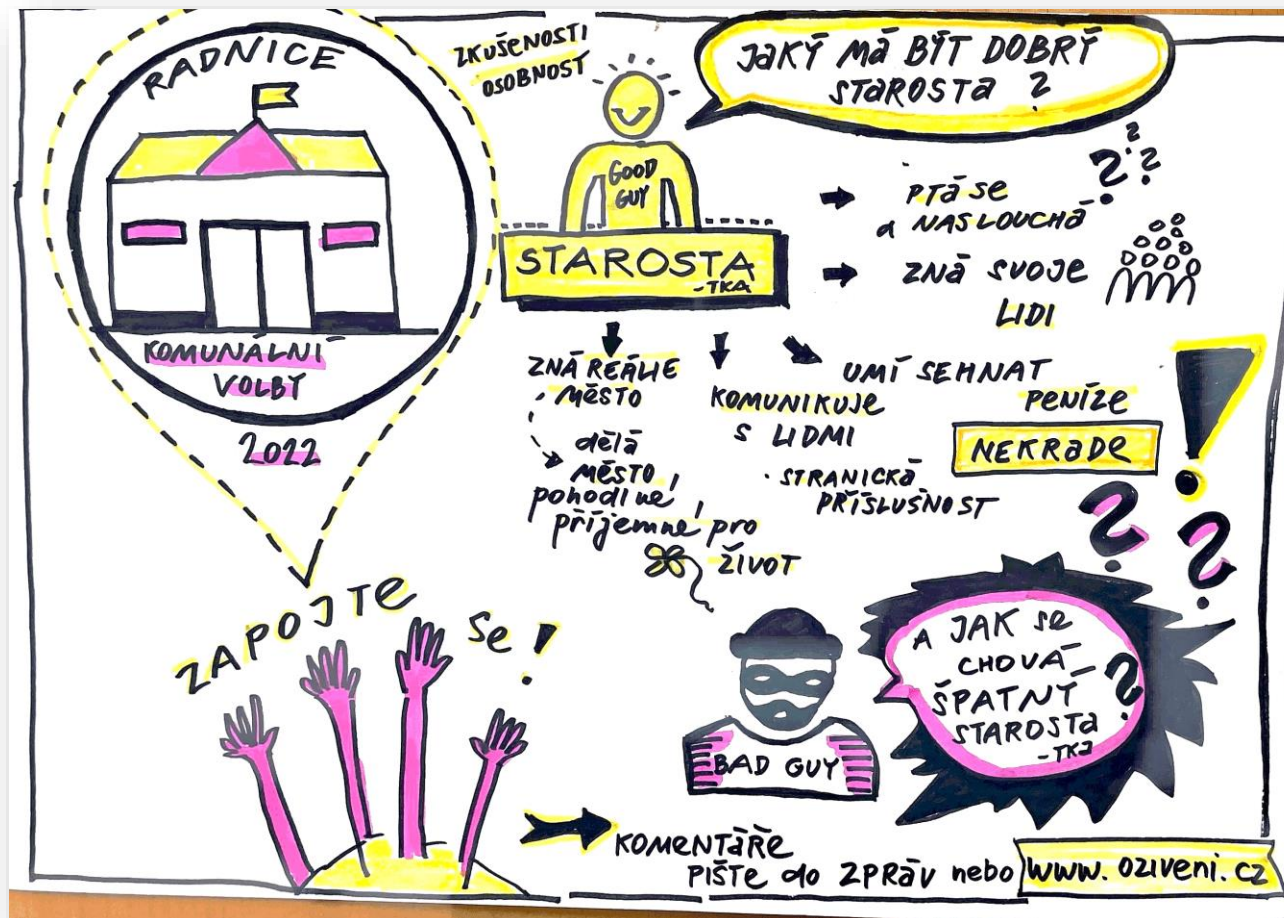 RADNICE
KOMUNÁLNÍ
VOLBY
2022
ZKUŠENOSTI
OSOBNOST
JAKÝ MÁ BÝT DOBRÝ
STAROSTA ?
GOOD
GUY
STAROSTA
-TKA
PTÁ SE
a NASLOUCHÁ
? ? ? ?
ZNÁ SVOJE
LIDI
ZNÁ REÁLIE
MĚSTO
dělá
MĚSTO,
pohodlné,
příjemné, pro
ŽIVOT
KOMUNIKUJE
S LIDMI
· STRANICKÁ
PŘÍSLUŠNOST
UMÍ SEHNAT
PENÍZE
NEKRADE
!
? ?
ZAPOJTE
SE !
BAD GUY
A JAK SE
CHOVÁ
ŠPATNÝ
STAROSTA
-TKA
?
KOMENTÁŘE
PIŠTE do ZPRÁV nebo www.oziveni.cz